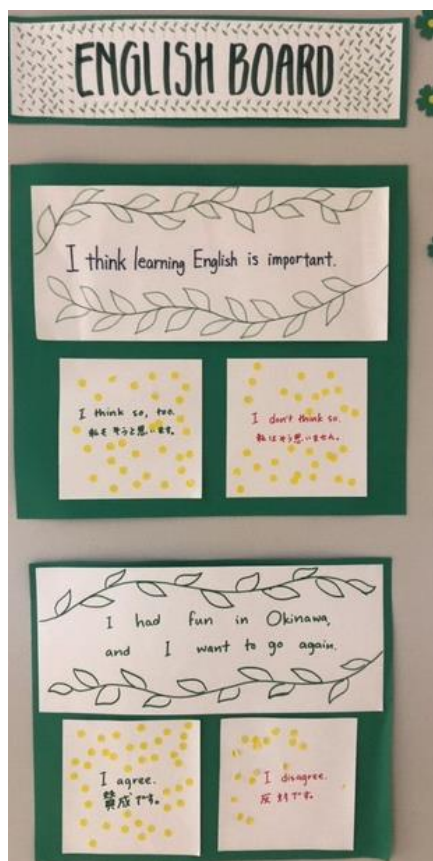 ENGLISH BOARD
I think learning English is important.
I think so, too.
私もそうと思います。
I don't think so.
私はそう思いません。
I had fun in Okinawa,
and I want to go again.
I agree.
賛成です。
I disagree.
反対です。